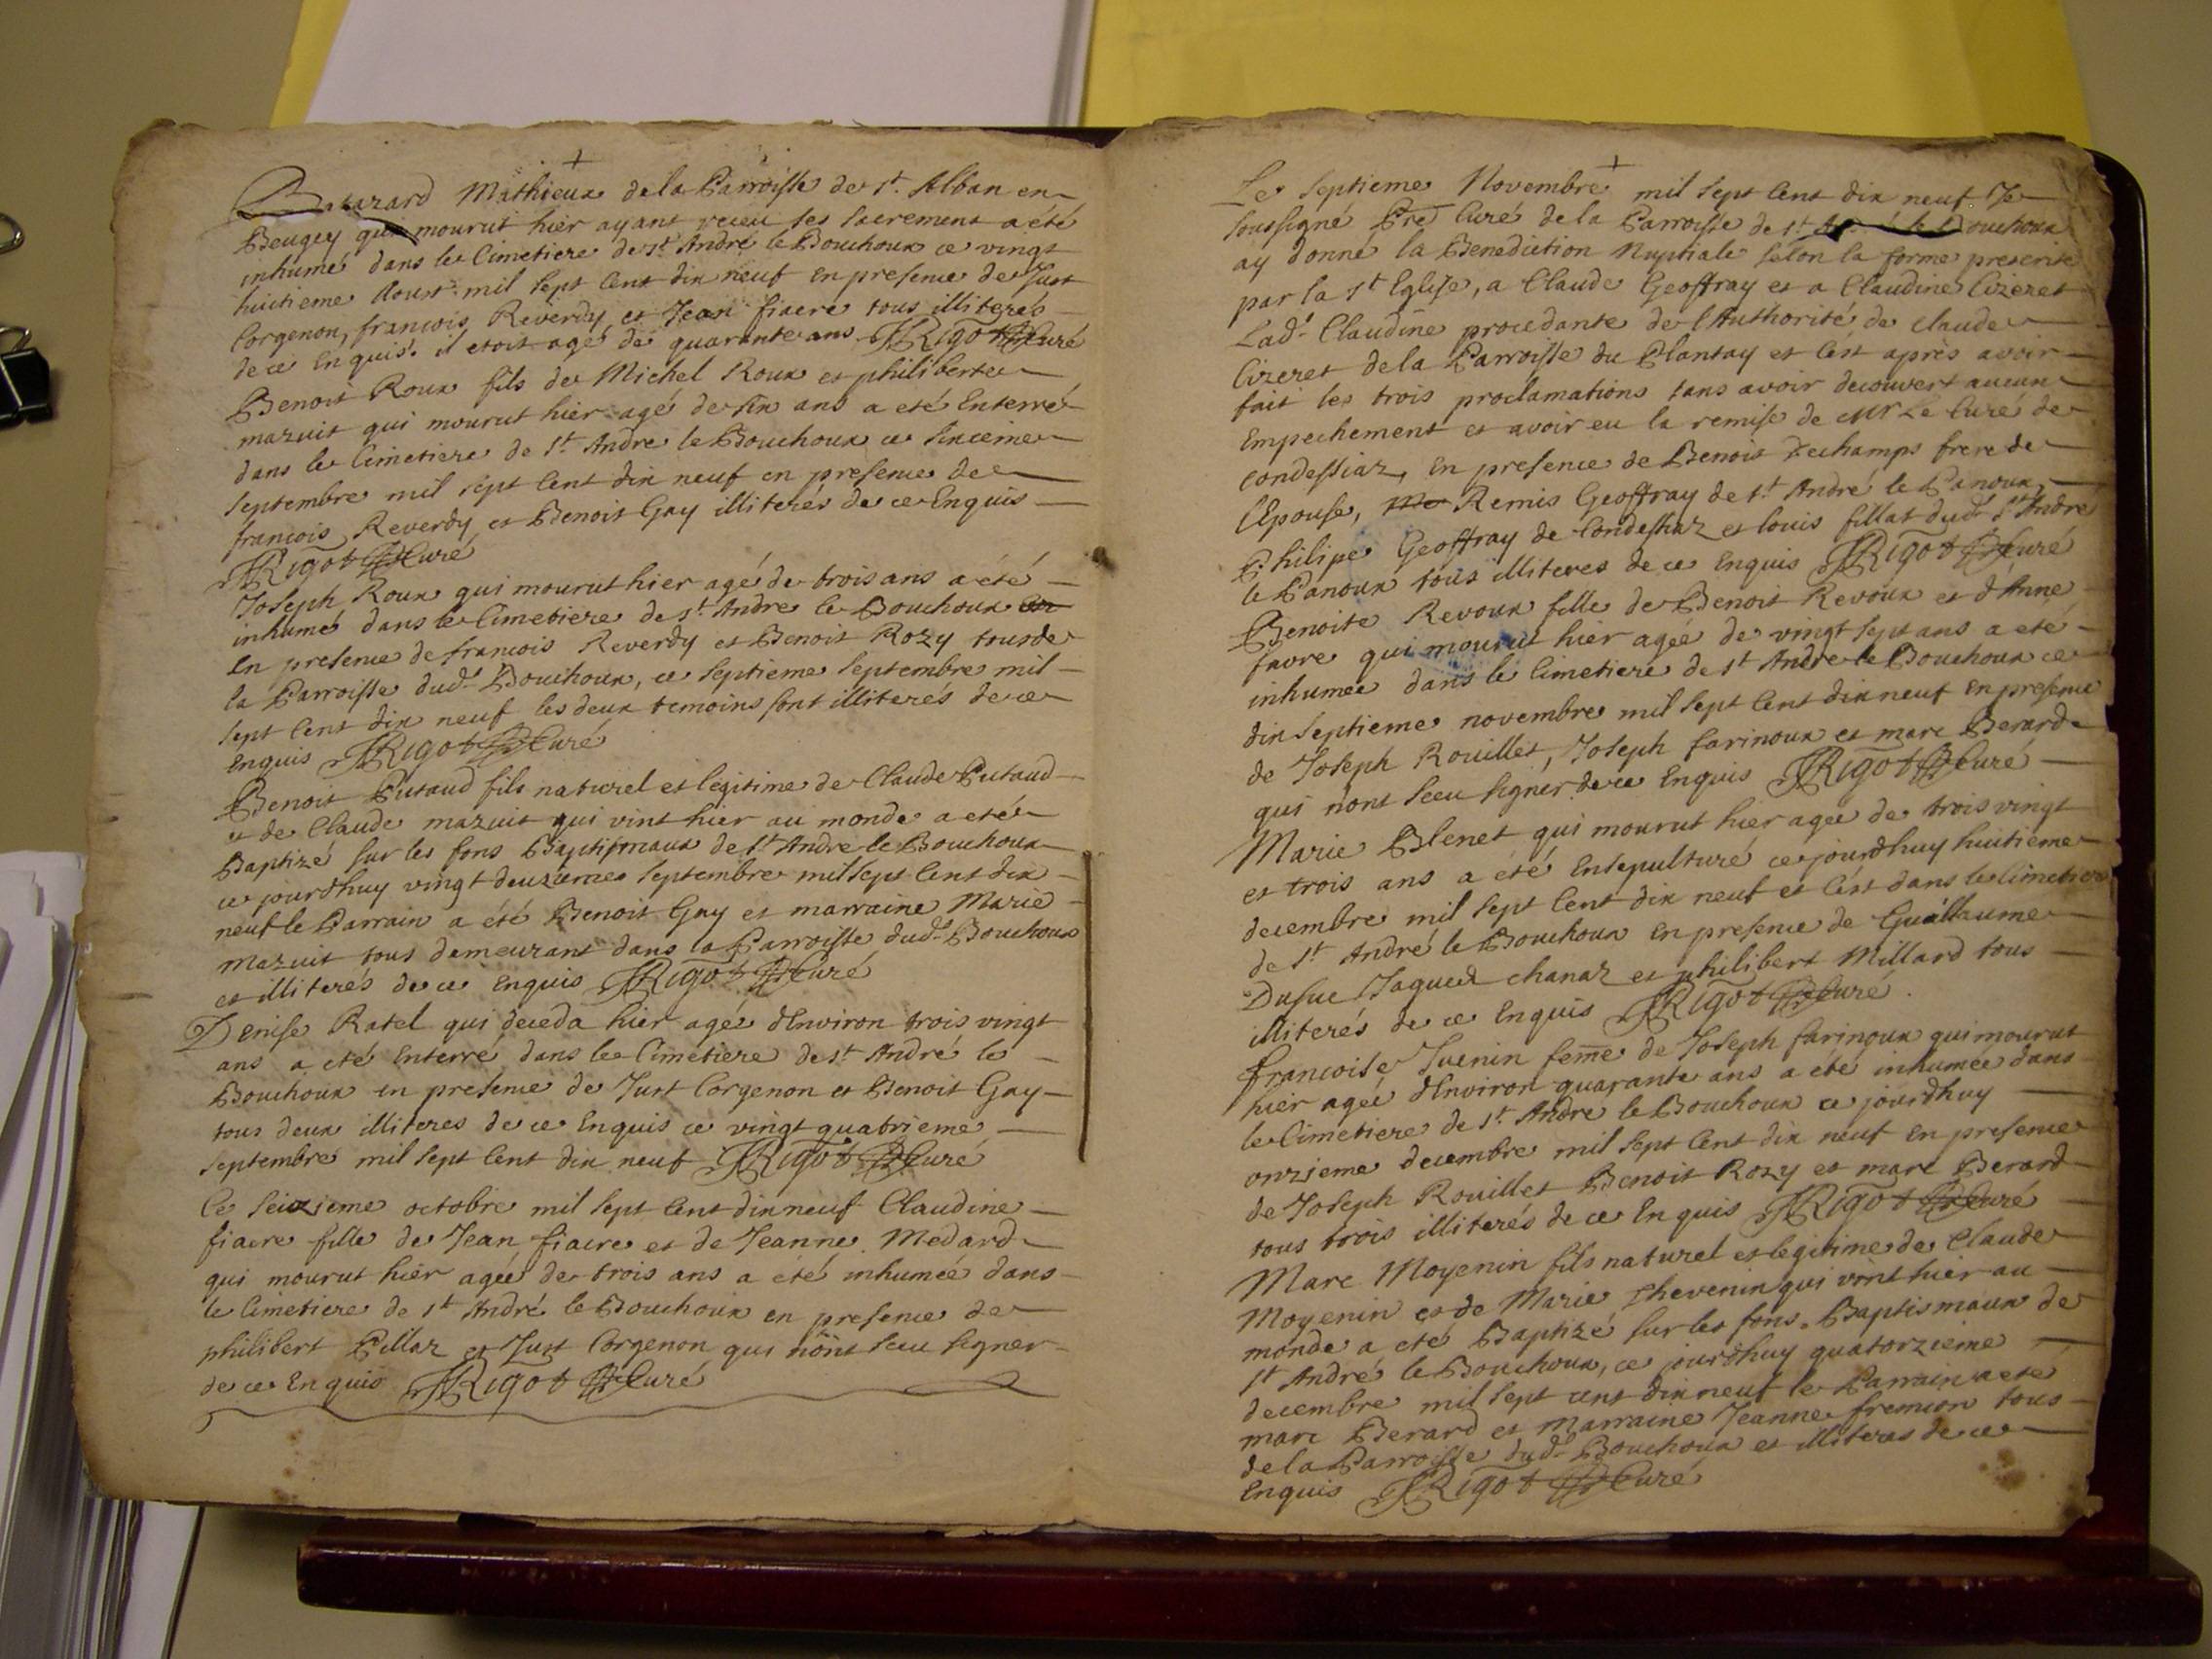 Mathieux de la Parroisse de St. Alban en
Beugey qui mourut hier ayant receu ses sacrement a été
inhumé dans le Cimetiere de St André le Bouchoux ce vingt
huitieme Aoust mil sept cent dix neuf en presence de Just
Corgenon, francois Reverdy et Jean fiacre tous illiterés
de ce Enquis. il etoit agé de quarante ans Rigot Curé
Benoit Roux fils de Michel Roux et philiberte
mazuit qui mourut hier agé de six ans a eté Enterré
dans le Cimetiere de St Andre le Bouchoux ce sixieme
septembre mil sept cent dix neuf en presence de
francois Reverdy et Benoit Gay illiterés de ce Enquis
Rigot Curé
Joseph Roux qui mourut hier agé de trois ans a été
inhumé dans le Cimetiere de St Andre le Bouchoux
En presence de francois Reverdy et Benoit Rozy tous de
la Parroisse dud. Bouchoux, ce septieme septembre mil
sept cent dix neuf les deux temoins sont illiterés de ce
enquis Rigot Curé
Benoit Putaud fils naturel et legitime de Claude Putaud
et de Claude mazuit qui vint hier au monde a eté
Baptizé sur les fons Baptismaux de St Andre le Bouchoux
ce jourdhuy vingt deuzieme septembre mil sept cent dix
neuf le Parrain a été Benoit Gay et marraine Marie
mazuit tous demeurant dans la Parroisse dud. Bouchoux
et illiterés de ce enquis Rigot Curé
Denise Ratel qui deceda hier agée dEnviron trois vingt
ans a eté Enterré dans le Cimetiere de St André le
Bouchoux en presence de Just Corgenon et Benoit Gay
tous deux illiteres de ce Enquis ce vingt quatrieme
septembre mil sept cent dix neuf Rigot Curé
Ce seizieme octobre mil sept cent dixneuf Claudine
fiacre fille de Jean fiacre et de Jeanne Medard
qui mourut hier agée de trois ans a eté inhumée dans
le Cimetiere de St André le Bouchoux en presence de
philibert Pillaz et Just Corgenon qui nont sceu signer
de ce Enquis Rigot Curé
Le septieme Novembre mil sept cent dix neuf Je
soussigné Pre Curé de la Parroisse de St André le Bouchoux
ay donné la Benediction Nuptiale selon la forme prescrite
par la St Eglise, a Claude Geoffray et a Claudine Cizeret
Lad. Claudine procedante de l'Authorité de Claude
Cizeret de la Parroisse du Plantay et cest après avoir
fait les trois proclamations sans avoir decouvert aucun
Empechement et avoir eu la remise de Mr Le Curé de
condessiaz, en presence de Benoit Dechamps frere de
lEpouse, Remis Geoffray de St André le Panoux,
Philipe Geoffray de Condessiaz et louis fillat dud. St André
le Panoux tous illiteres de ce Enquis Rigot Curé
Benoite Revoux fille de Benoit Revoux et dAnne
favre qui mourut hier agée de vingt sept ans a eté
inhumée dans le Cimetiere de St Andre le Bouchoux ce
dix septieme novembre mil sept cent dix neuf en presence
de Joseph Rouillet, Joseph farinoux et marc Berard
qui nont sceu signer de ce Enquis Rigot Curé
Marie Blenet qui mourut hier agée de trois vingt
et trois ans a été Ensepulturé ce jourdhuy huitieme
decembre mil sept cent dix neuf et cest dans le Cimetiere
de St André le Bouchoux en presence de Guillaume
Dufuc Jaques chanaz et philibert Millard tous
illiterés de ce Enquis Rigot Curé.
francoise Juenin feme de Joseph farinoux qui mourut
hier agée dEnviron quarante ans a été inhumée dans
le Cimetiere de St Andre le Bouchoux ce jourdhuy
onzieme decembre mil sept cent dix neuf en presence
de Joseph Rouillet Benoit Rozy et marc Berard
tous trois illiterés de ce Enquis Rigot Curé
Marc Moyenin fils naturel et legitime de Claude
Moyenin et de Marie Thevenin qui vint hier au
monde a eté Baptizé sur les fons Baptismaux de
St André le Bouchoux, ce jourdhuy quatorzieme
decembre mil sept cent dix neuf le Parrain a eté
marc Berard et Marraine Jeanne fremion tous
de la Parroisse dud. Bouchoux et illiteres de ce
Enquis Rigot Curé